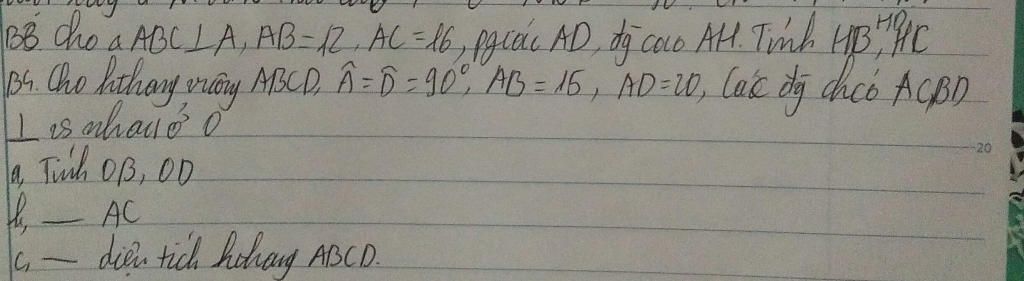 B3 Cho △ ABC ⊥ A, AB = 12, AC = 16, pgiác AD, đg cao AH. Tính HB, HD, HC
B4. Cho hthang vuông ABCD, Â = D̂ = 90°, AB = 15, AD = 20, Các đg chéo AC, BD
⊥ vs nhau ở O
a, Tính OB, OD
b, — AC
c, — diện tích hthang ABCD.
20